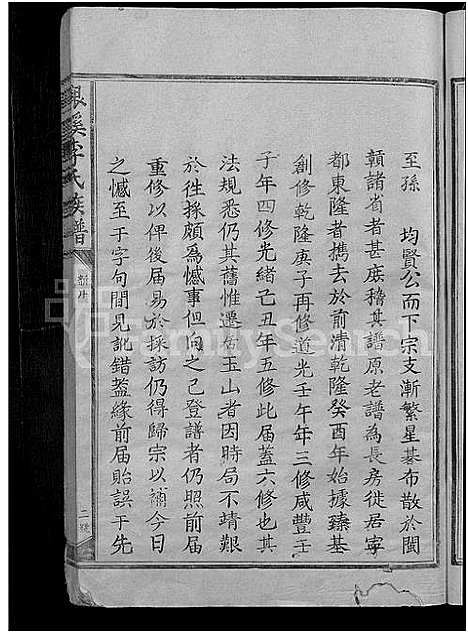 至孫　均賢公而下宗支漸繁星碁布散於閩
贛諸省者甚庶稽其譜原老譜為長房徙君寧
都東隆者携去於前清乾隆癸酉年始據臻基
創修乾隆庚子再修道光壬午年三修咸豐壬
子年四修光緒己丑年五修此届蓋六修也其
法規悉仍其舊惟遷居玉山者因時局不靖艱
於徃採頗為憾事但向之已登譜者仍照前届
重修以俾後届易於採訪仍得歸宗以補今日
之憾至于字句間見訛錯蓋緣前届貽誤于先
銀溪李氏族譜
新序
二
FamilySearch